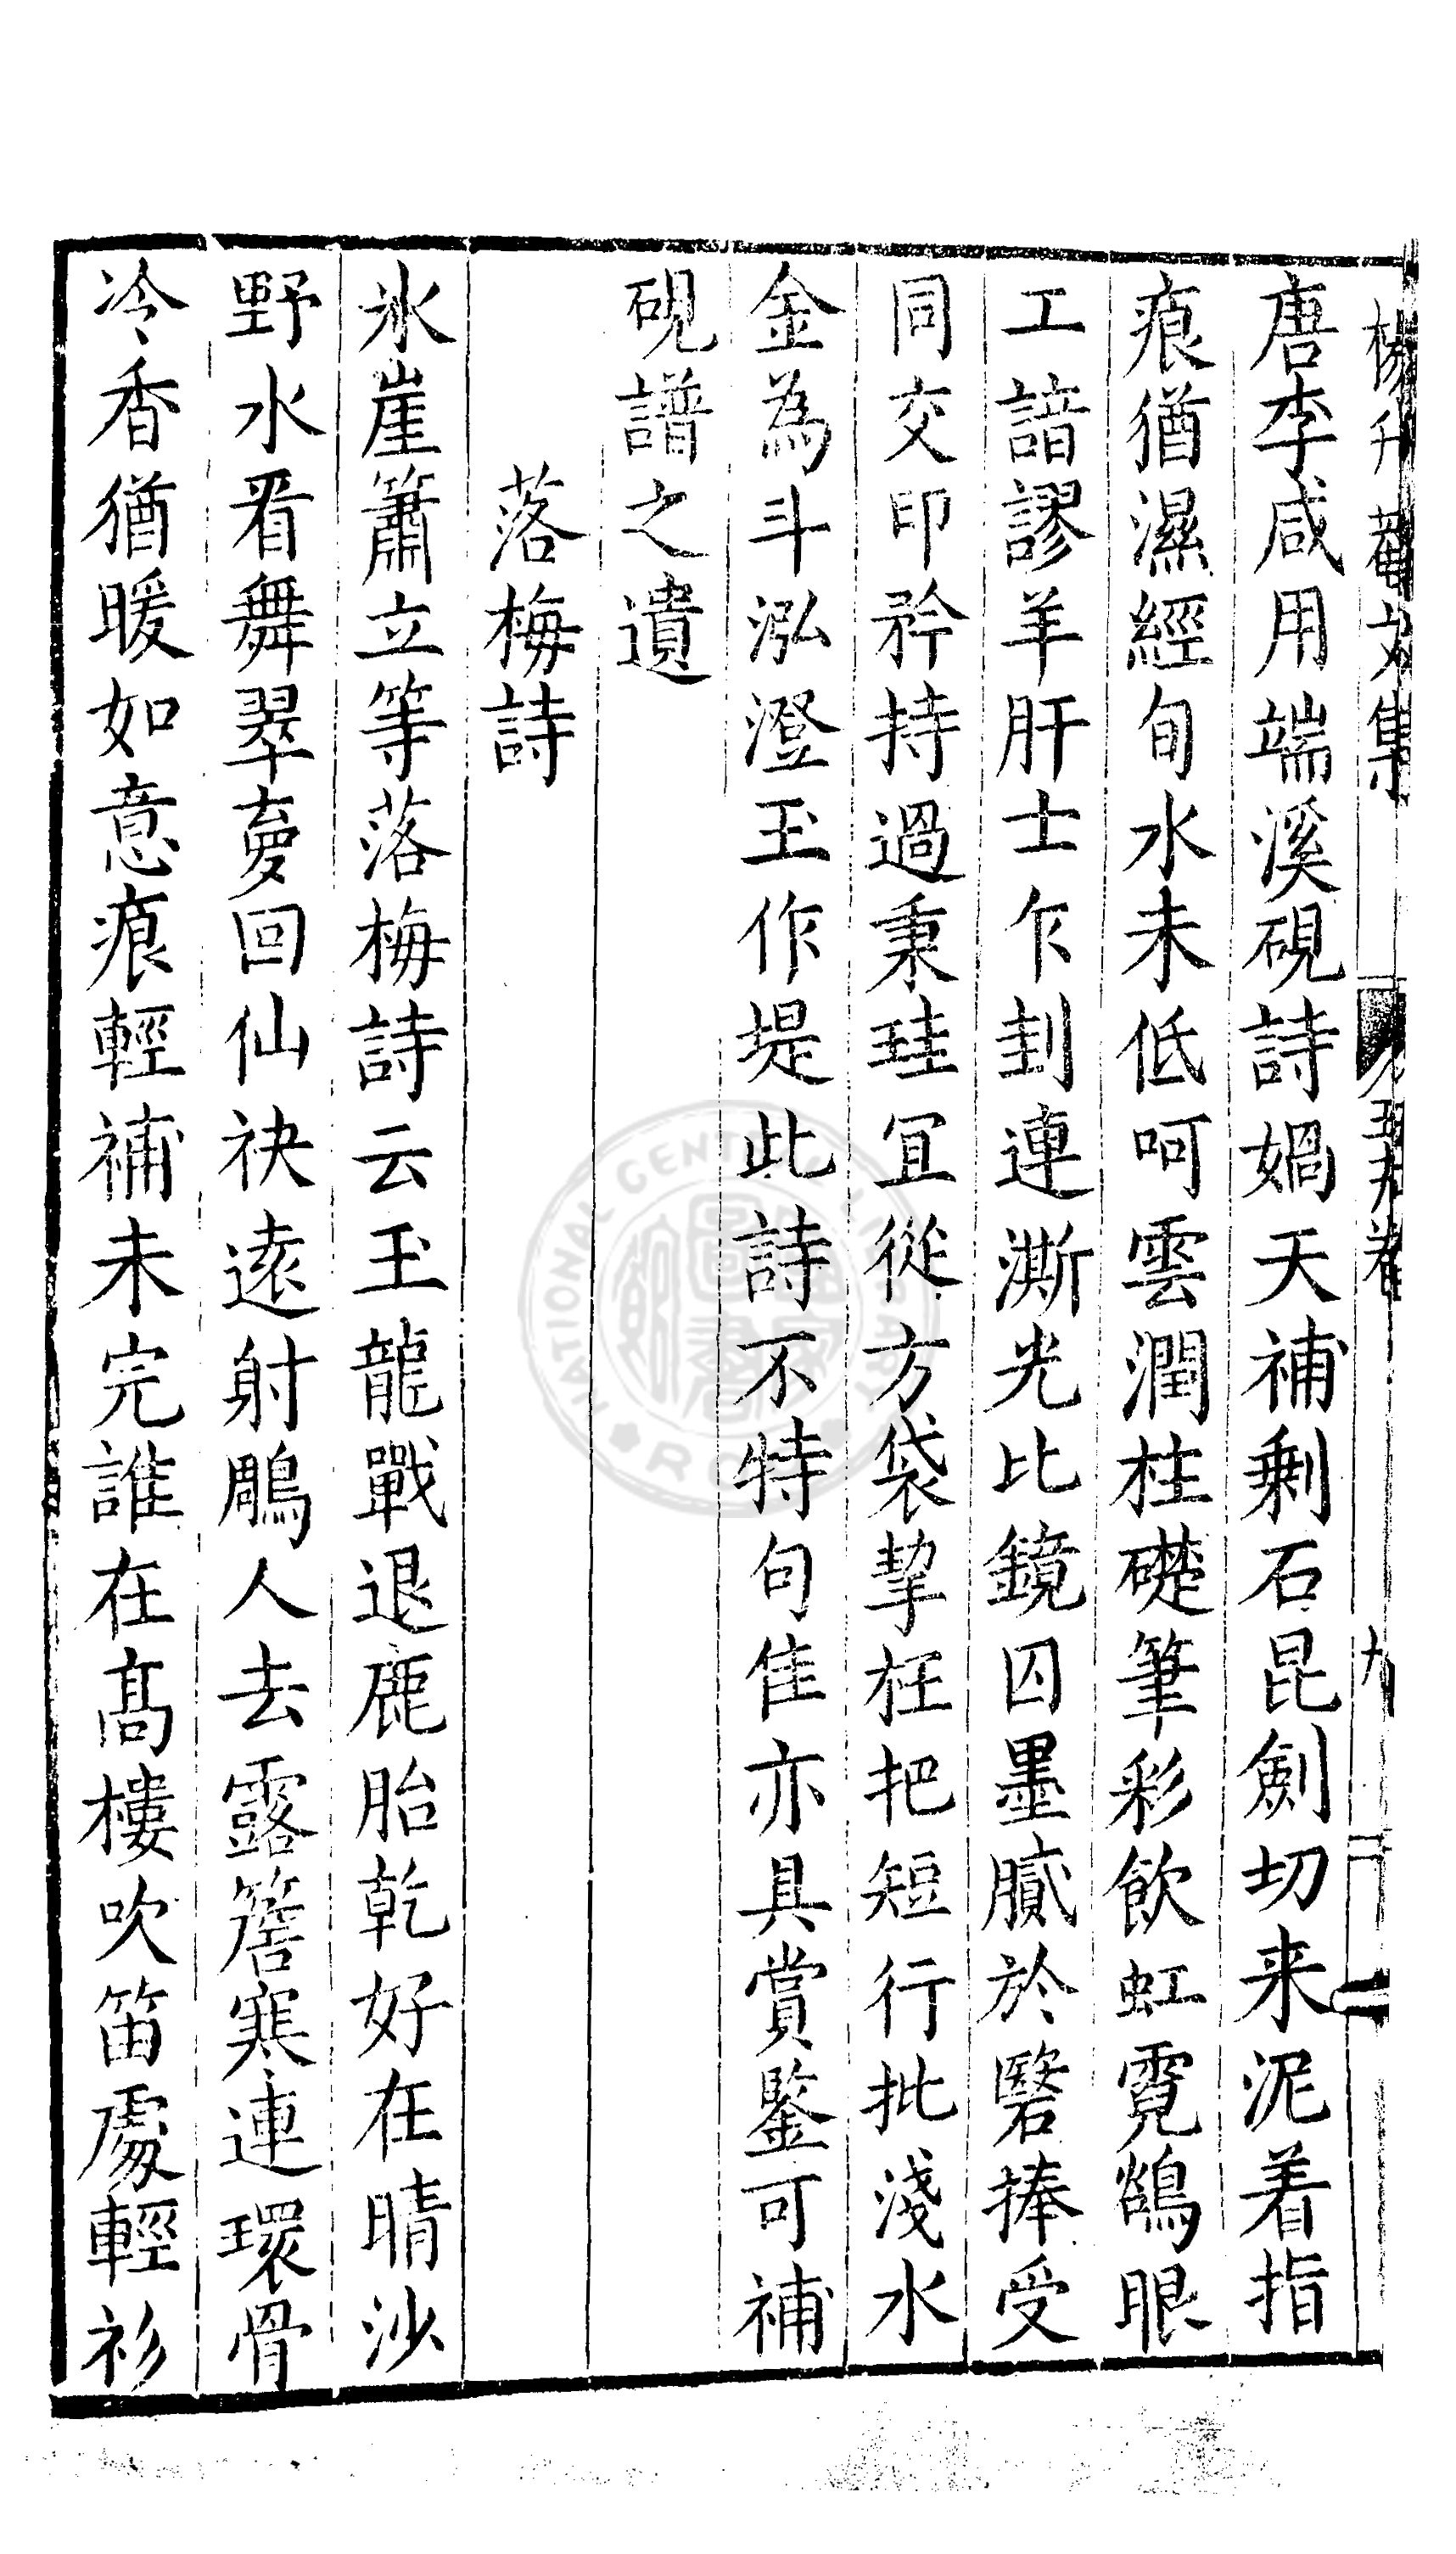 楊升菴文集
五十九卷
九
唐李咸用端溪硯詩媧天補剩石昆劍切来泥着指
痕猶濕經旬水未低呵雲潤柱礎筆彩飲虹霓鵒眼
工諳謬羊肝士乍刲連澌光比鏡囚墨膩於瑿捧受
同交印矜持過秉珪冝從方袋挈枉把短行批淺水
金為斗泓澄玉作堤此詩不特句佳亦具賞鑒可補
硯譜之遺
落梅詩
氷崖簫立等落梅詩云玉龍戰退鹿胎乾好在晴沙
野水看舞翠夣回仙袂遠射鵰人去露簷寒連環骨
冷香猶暖如意痕輕補未完誰在髙樓吹笛處輕衫